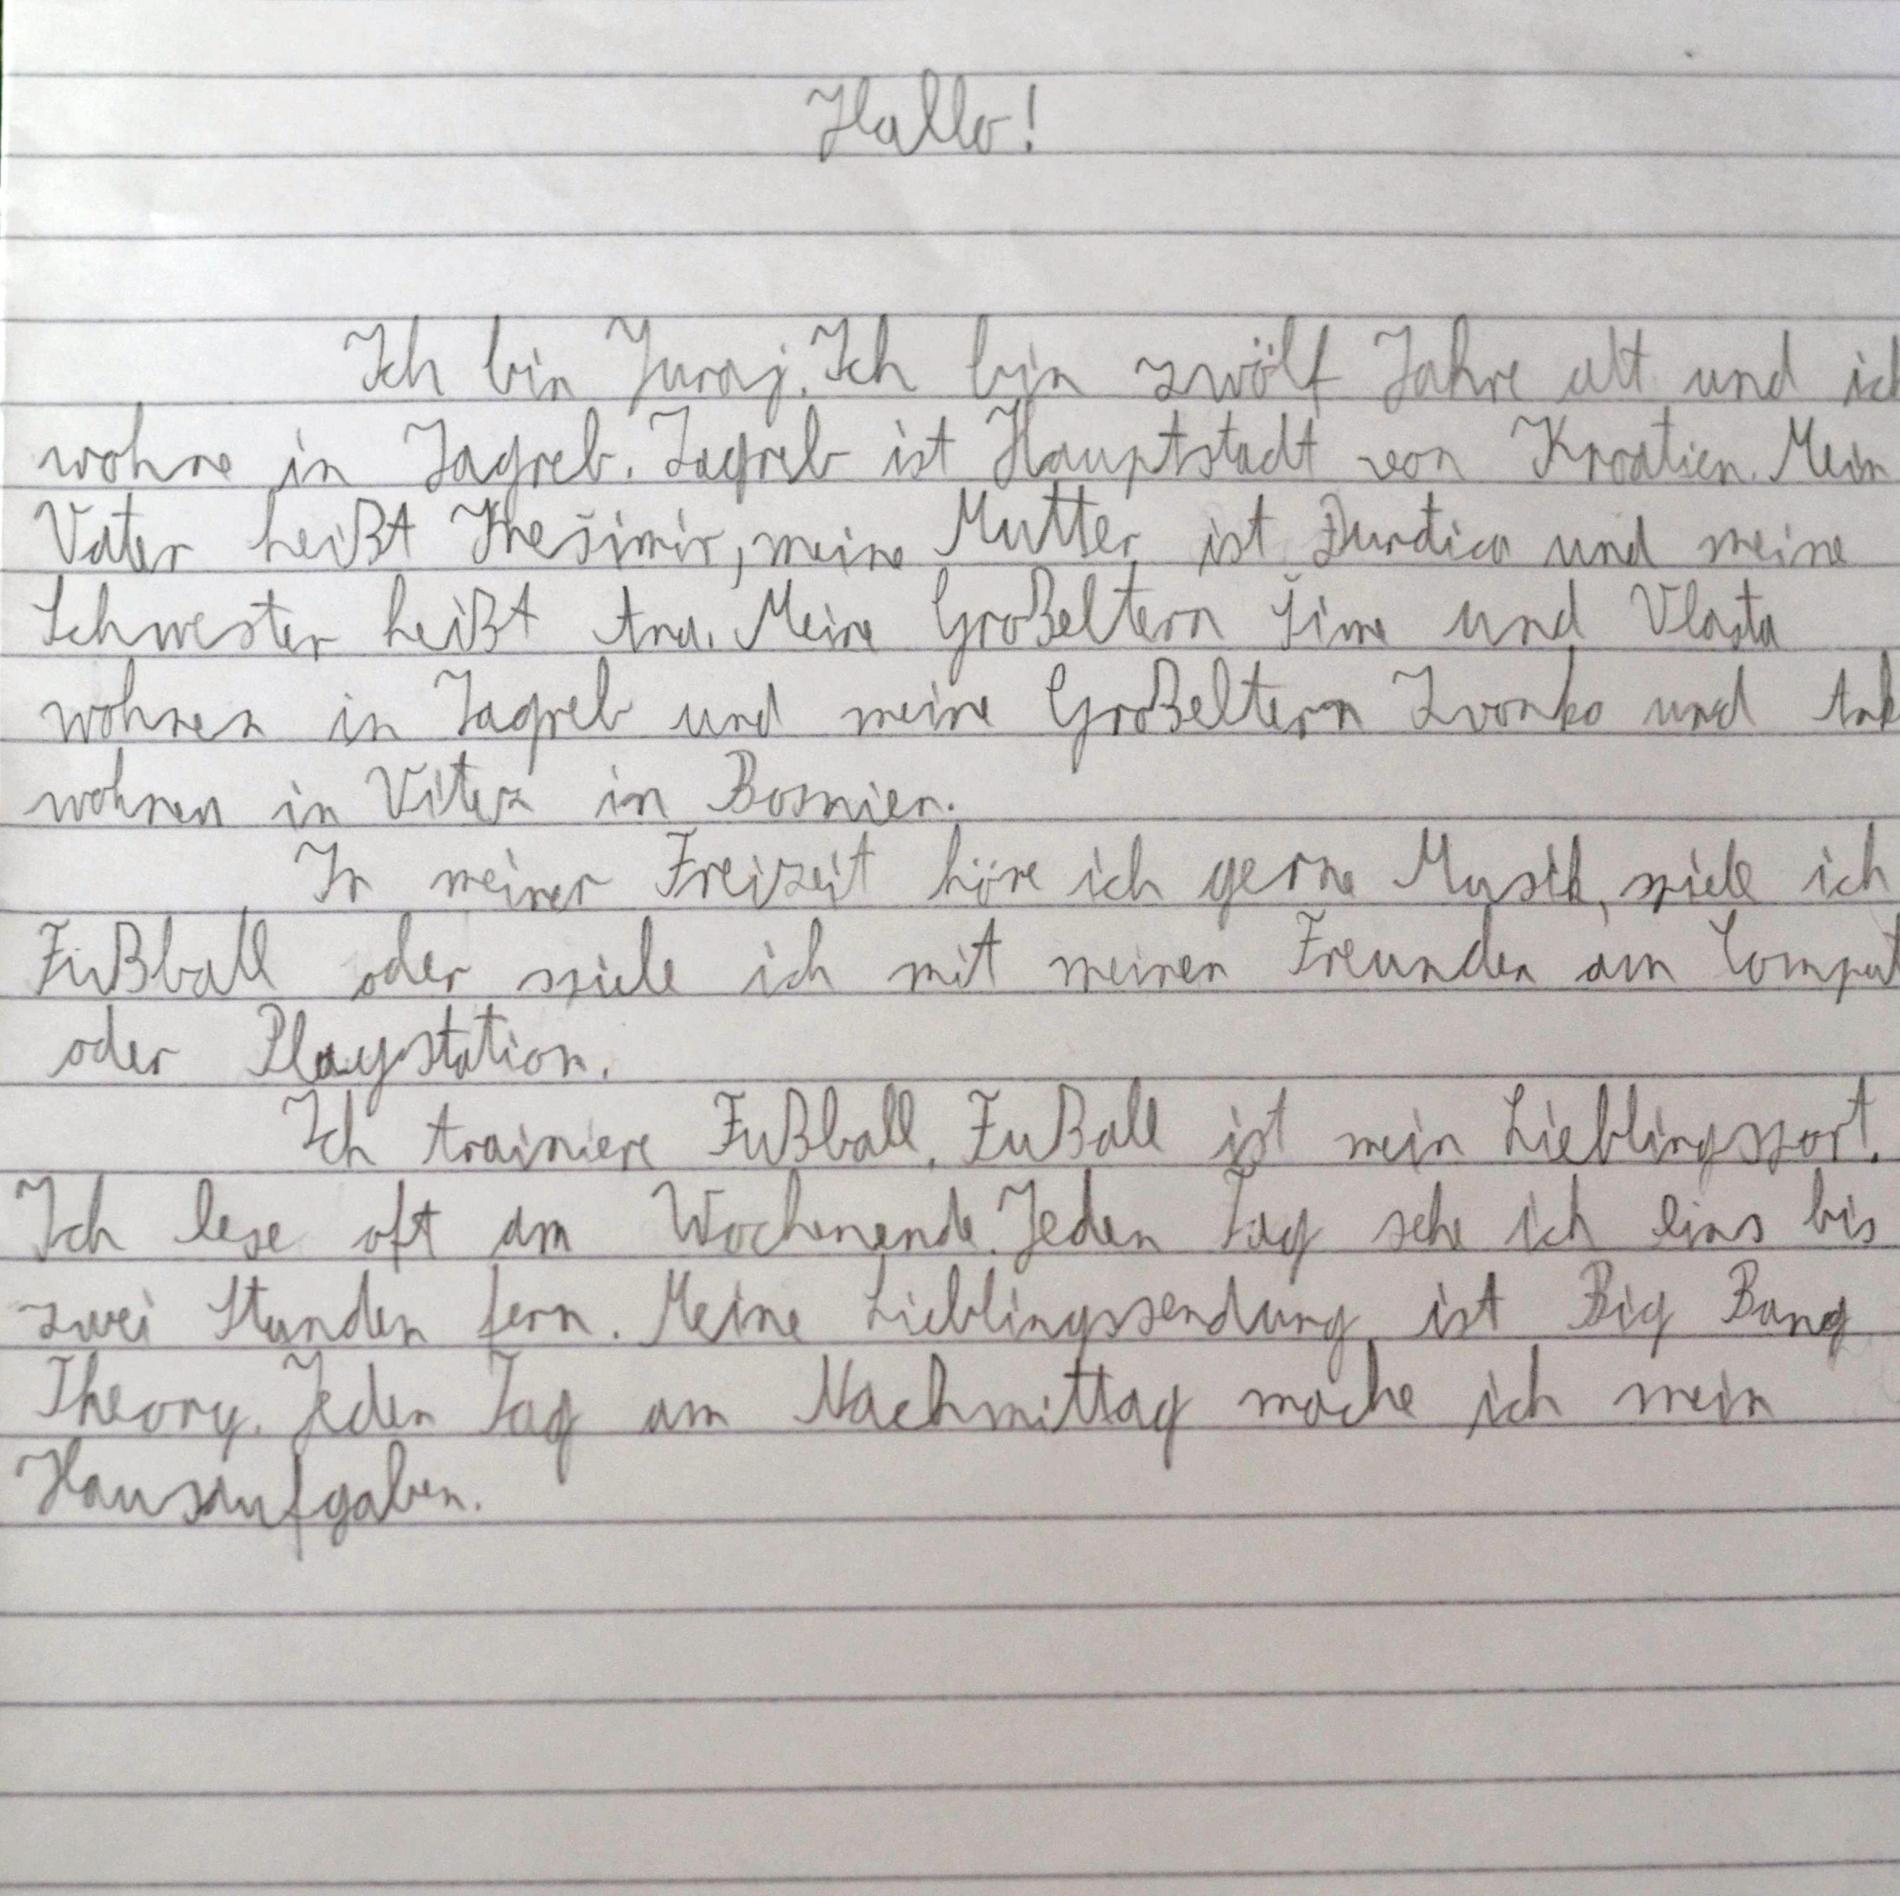 Hallo!
Ich bin Juraj. Ich bin zwölf Jahre alt und ich
wohne in Zagreb. Zagreb ist Hauptstadt von Kroatien. Mein
Vater heißt Krešimir, meine Mutter ist Đurdica und meine
Schwester heißt Ana. Meine Großeltern Šime und Vlasta
wohnen in Zagreb und meine Großeltern Zvonko und
wohnen in Vitez in Bosnien.
In meiner Freizeit höre ich gerne Musik, spiele ich
Fußball oder spiele ich mit meinen Freunden am Comput
oder Playstation.
Ich trainiere Fußball. Fußall ist mein Lieblingssport.
Ich lese oft am Wochenende. Jeden Tag sehe ich eins bis
zwei Stunden fern. Meine Lieblingssendung ist Big Bang
Theory. Jeden Tag am Nachmittag mache ich mein
Hausaufgaben.